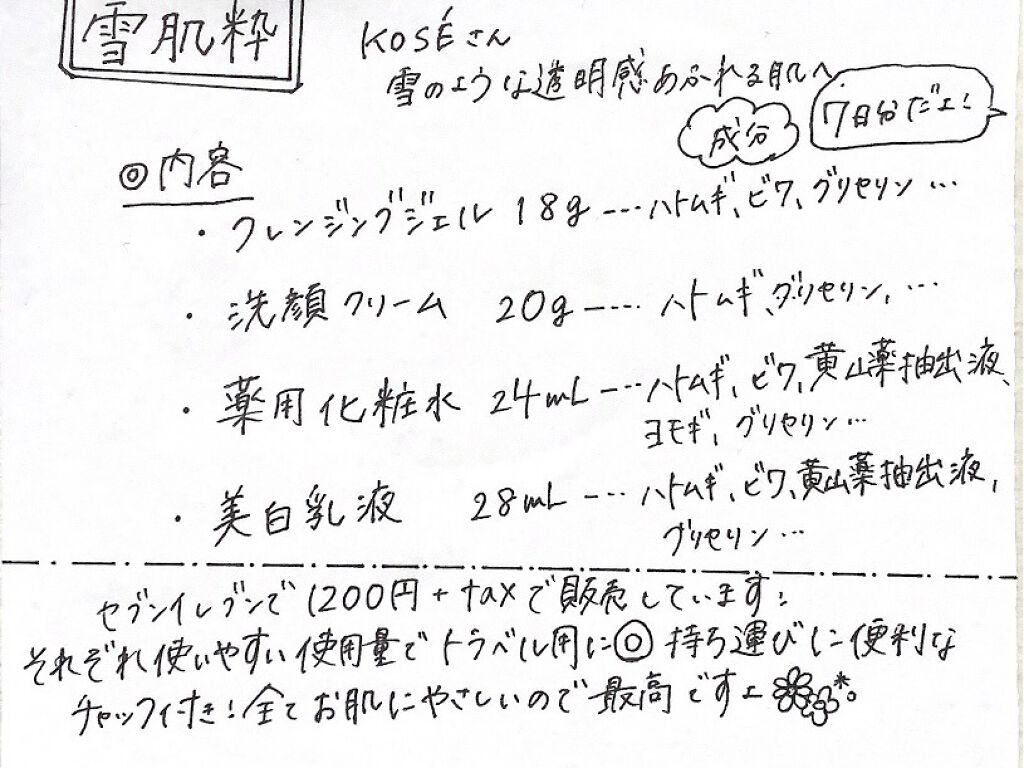 雪肌粋
KOSÉさん
雪のような透明感あふれる肌へ
7日分だよ!
成分
◎内容
・クレンジングジェル 18g ---- ハトムギ、ビワ、グリセリン…
・洗顔クリーム 20g ---- ハトムギ、グリセリン、…
・薬用化粧水 24mL ---- ハトムギ、ビワ、黄山薬抽出液、
ヨモギ、グリセリン…
・美白乳液 28mL ---- ハトムギ、ビワ、黄山薬抽出液、
グリセリン…
セブンイレブンで1200円+taxで販売しています!
それぞれ使いやすい使用量でトラベル用に◎持ち運びに便利な
チャック付き!全てお肌にやさしいので最高ですよ